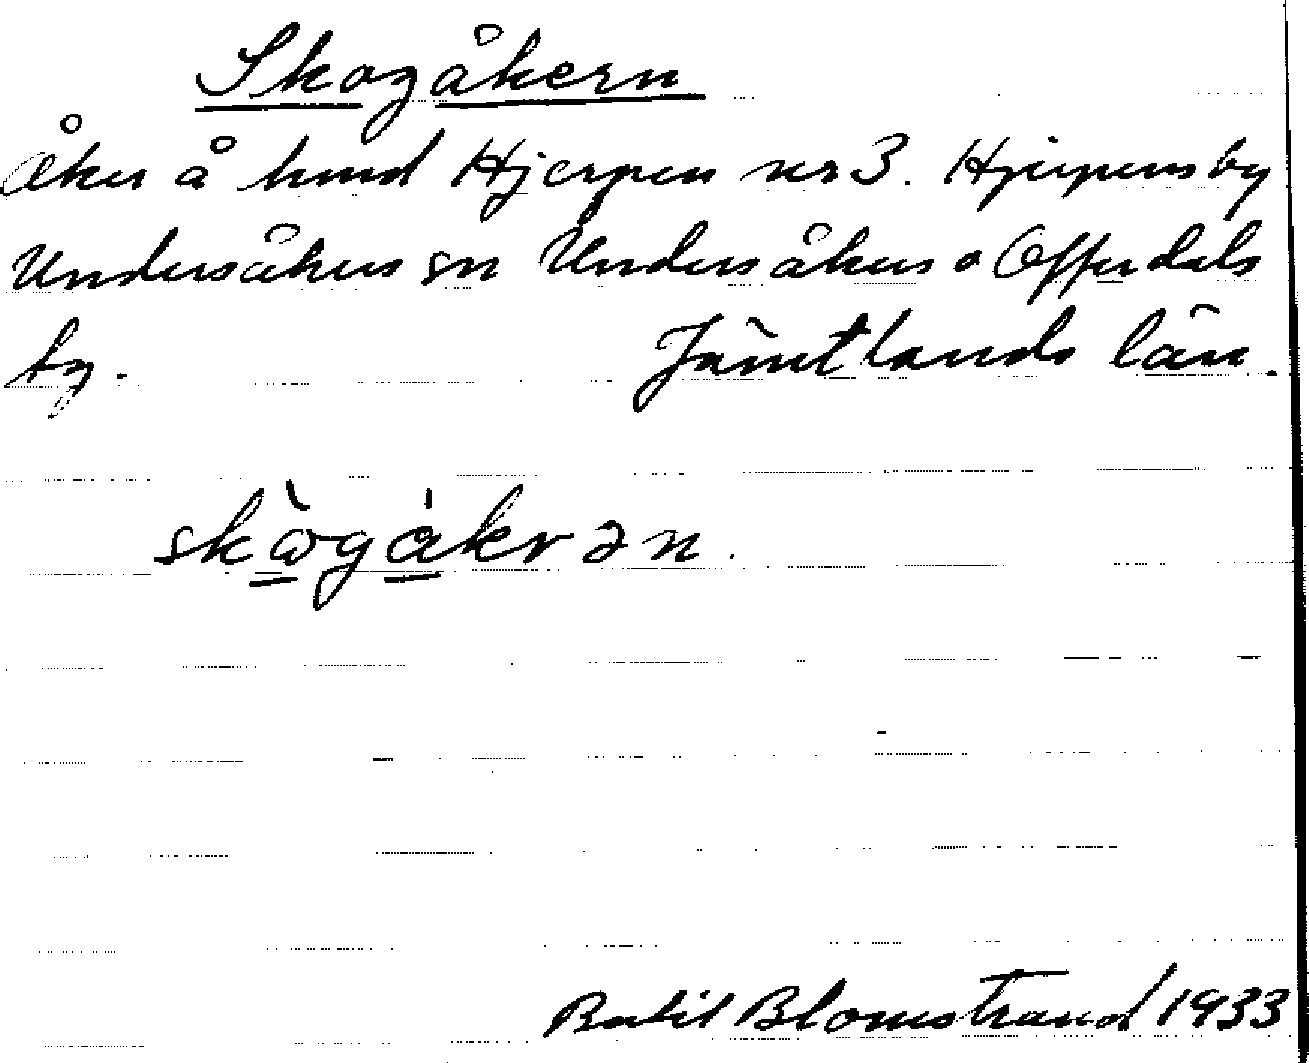 Skogåkern
Åker å hmd Hjerpen nr 3. Hjerpens by
Undersåkers sn Undersåkers o Offerdals
tg. Jämtlands län.
skògákrən.
Bertil Blomstrand 1933